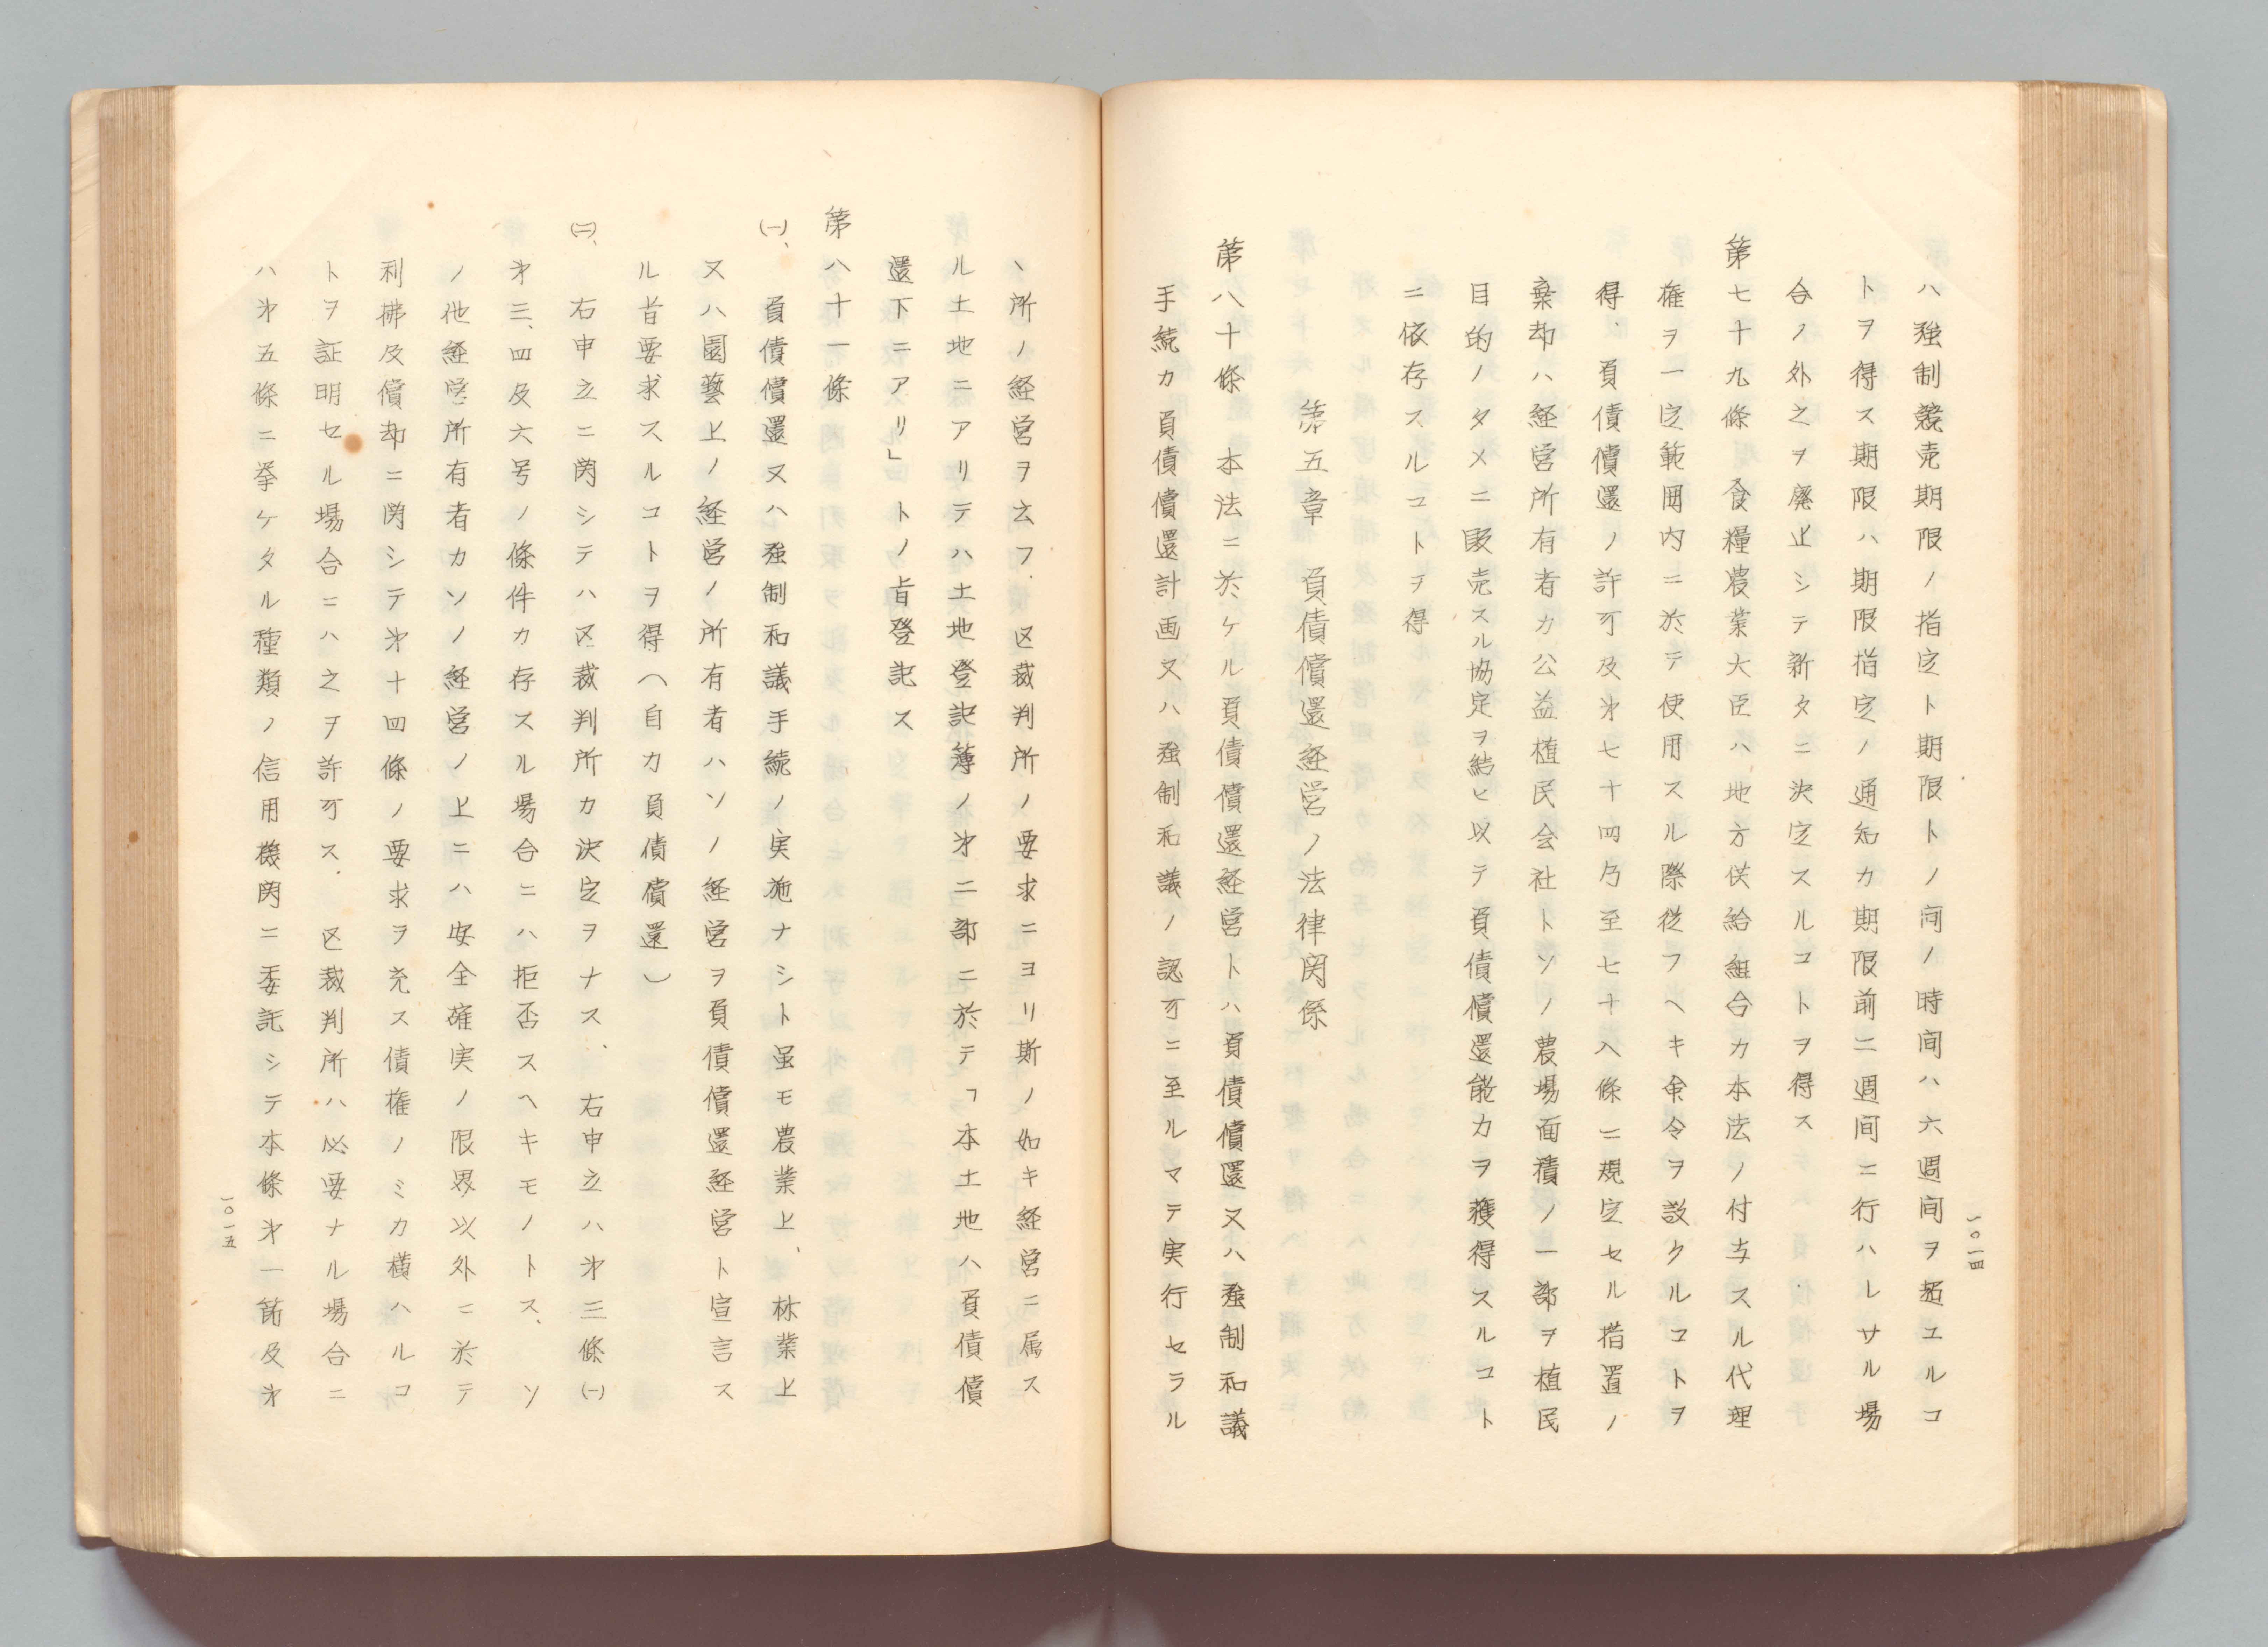 一〇一四
ハ強制競売期限ノ指定ト期限トノ間ノ時間ハ六週間ヲ超ユルコ
トヲ得ス期限ハ期限指定ノ通知カ期限前二週間ニ行ハレサル場
合ノ外之ヲ廃止シテ新タニ決定スルコトヲ得ス
第七十九條　食糧農業大臣ハ地方供給組合カ本法ノ付与スル代理
権ヲ一定範囲内ニ於テ使用スル際従フヘキ余令ヲ設クルコトヲ
得、負債償還ノ許可及才七十四乃至七十八條ニ規定セル措置ノ
棄却ハ経営所有者カ公益植民会社トソノ農場面積ノ一部ヲ植民
目的ノタメニ販売スル協定ヲ結ヒ以テ負債償還能力ヲ獲得スルコト
ニ依存スルコトヲ得
第五章　負債償還経営ノ法律関係
第八十條　本法ニ於ケル負債償還経営トハ負債償還又ハ強制和議
手続カ負債償還計画又ハ強制和議ノ認可ニ至ルマテ実行セラル
ヽ所ノ経営ヲ云フ、区裁判所ノ要求ニヨリ斯ノ如キ経営ニ属ス
ル土地ニアリテハ土地登記簿ノ才二部ニ於テ「本土地ハ負債償
還下ニアリ」トノ旨登記ス
第八十一條
(一)、負債償還又ハ強制和議手続ノ実施ナシト虽モ農業上、林業上
又ハ園藝上ノ経営ノ所有者ハソノ経営ヲ負債償還経営ト宣言ス
ル旨要求スルコトヲ得（自力負債償還）
(二)、右申立ニ関シテハ区裁判所カ決定ヲナス、右申立ハ才三條(一)
才三、四及六号ノ條件カ存スル場合ニハ拒否スヘキモノトス、ソ
ノ他経営所有者カソノ経営ノ上ニハ安全確実ノ限界以外ニ於テ
利拂及償却ニ関シテ才十四條ノ要求ヲ充ス債権ノミカ横ハルコ
トヲ証明セル場合ニハ之ヲ許可ス、区裁判所ハ必要ナル場合ニ
ハ才五條ニ挙ケタル種類ノ信用機関ニ委託シテ本條才一節及才
一〇一五